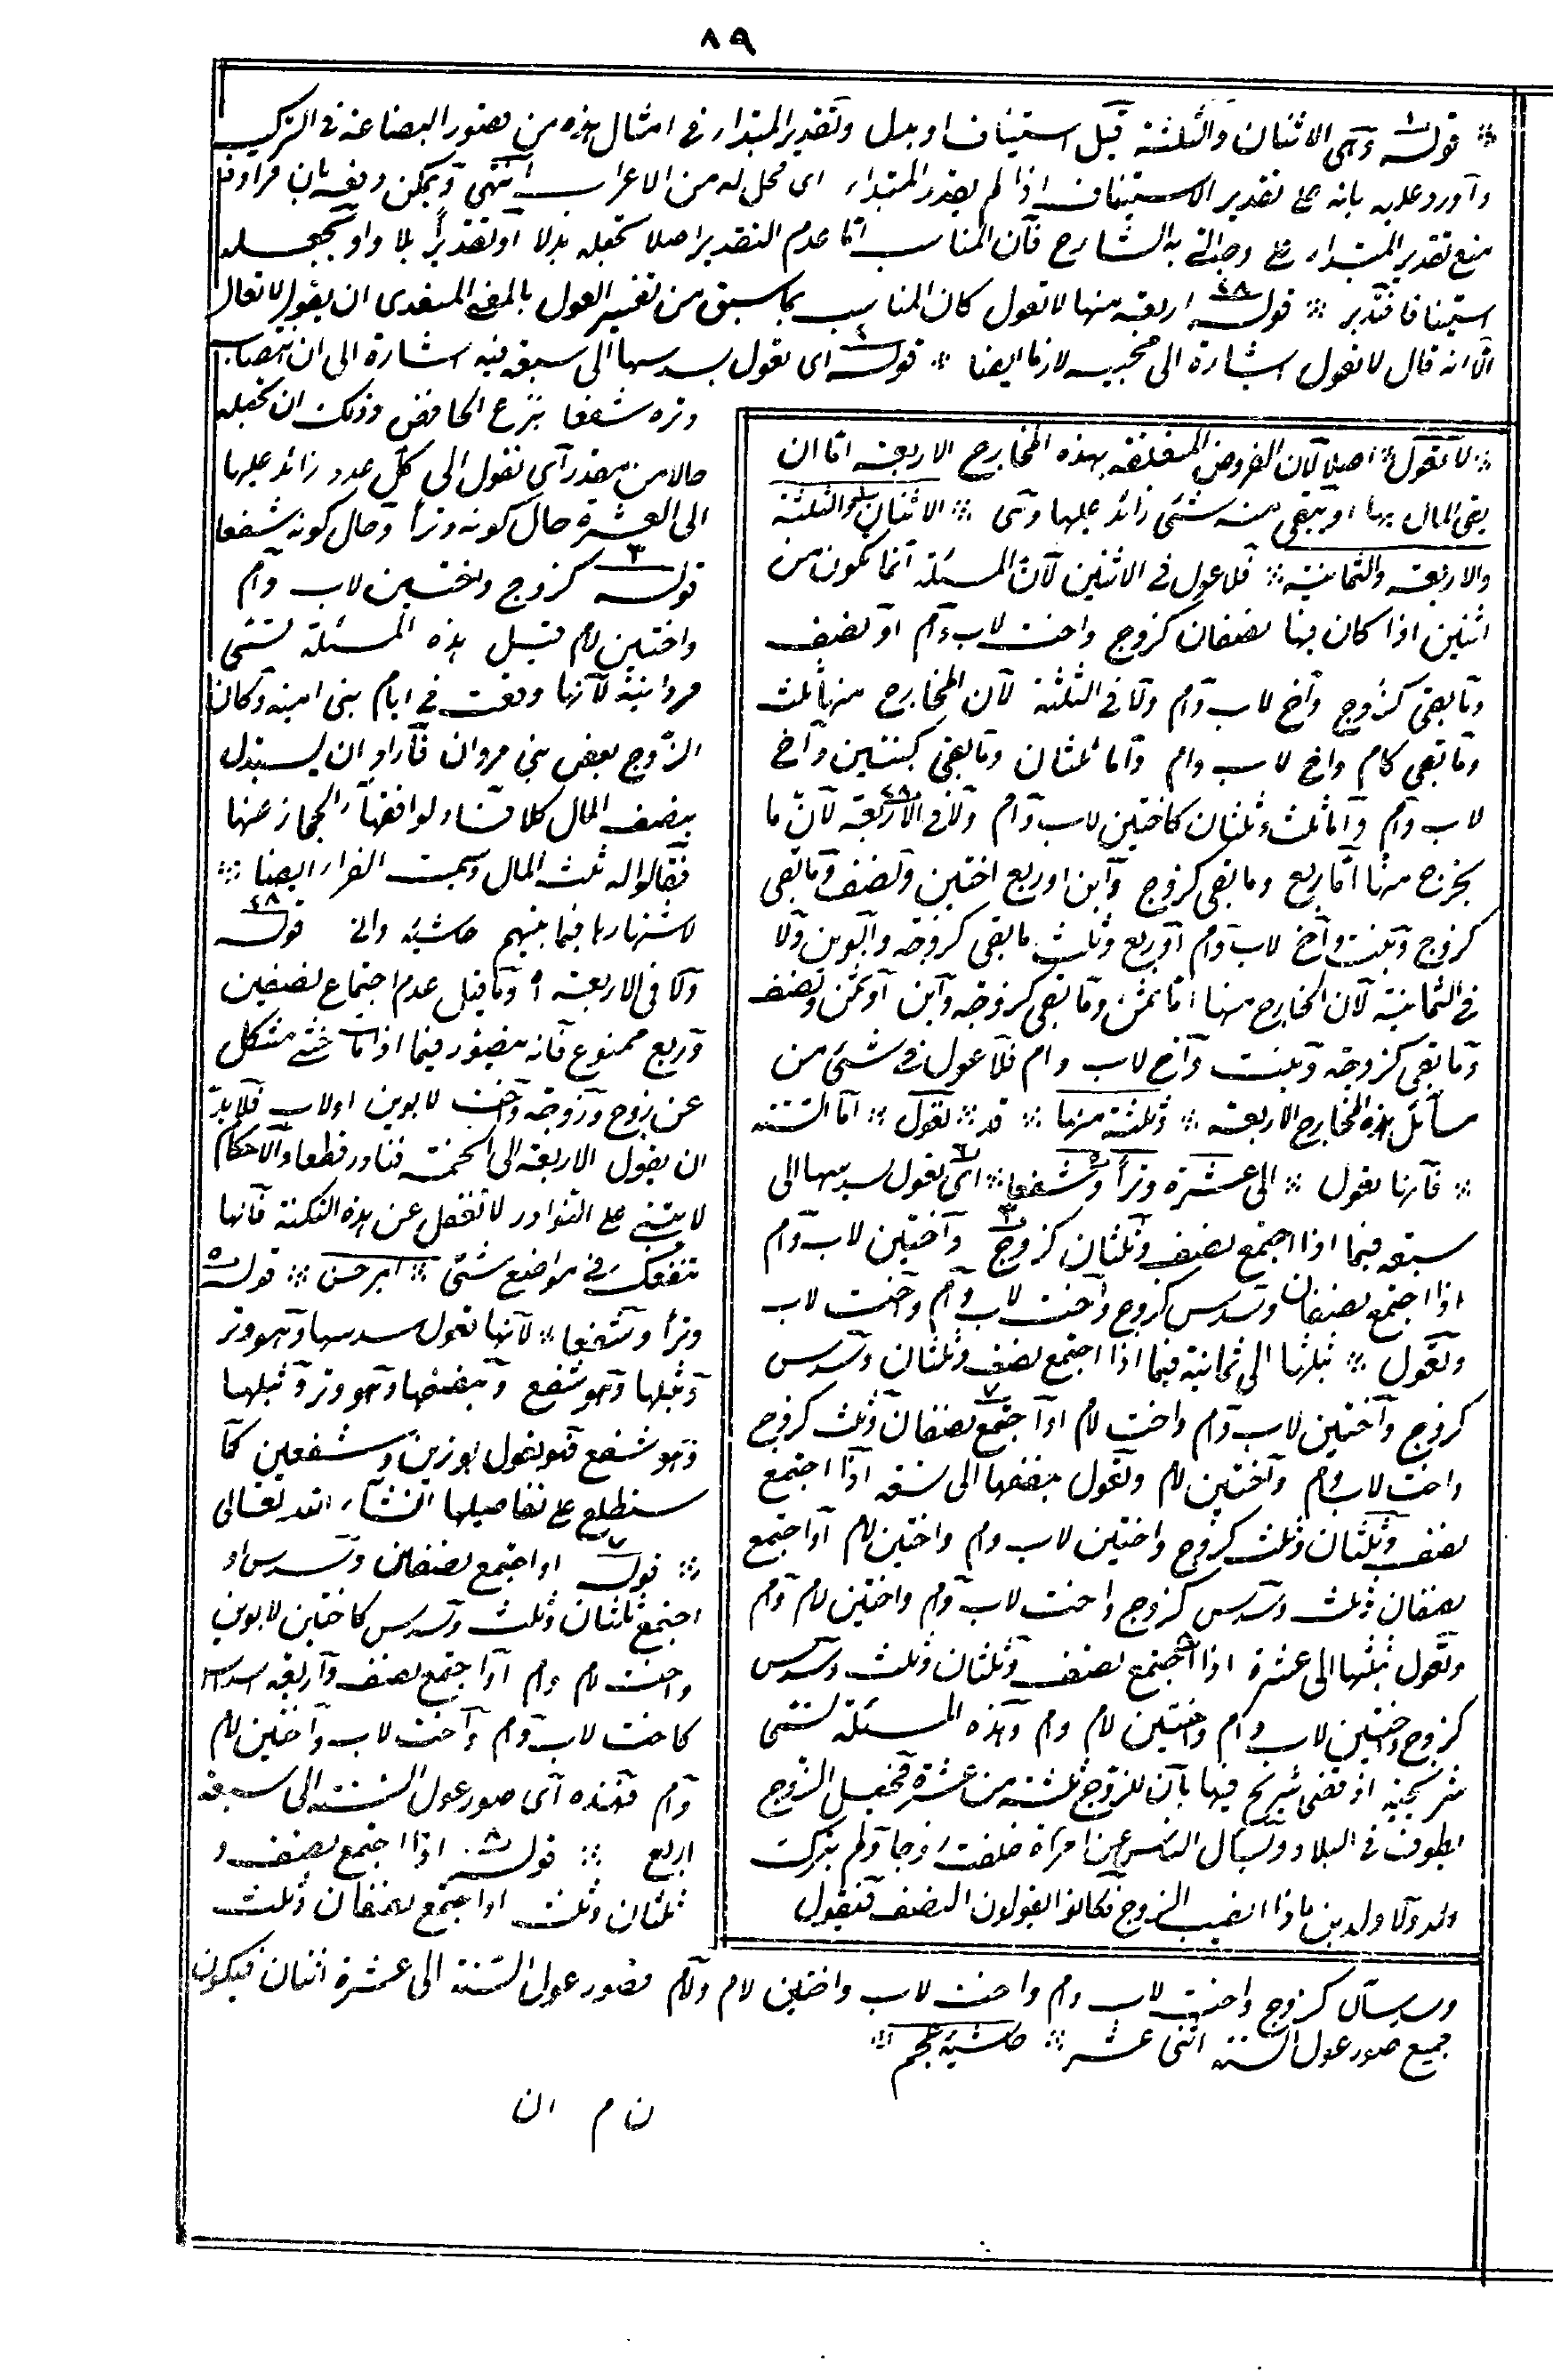 ٨٩
قوله وهى الاثنان والثلثة قيل استيناف او بدل وتقدير المبتداء فى امثال هذه من قصور البضاعة فى التركيب
واورد عليه بانه على تقدير الاستيناف اذا لم يقدر المبتداء اى محل له من الاعراب انتهى ويمكن دفعه بان مراده
منع تقدير المبتداء على وجه اتى به الشارح فان المناسب اما عدم التقدير اصلا بجعله بدلا او تقديرا بلا واو بجعله
استينافا فتدبر قوله اربعة منها لا تعول كان المناسب بما سبق من تفسير العول بالمعنى المتعدى ان يقول لا تعال
الا انه قال لا تعول اشارة الى مجيئه لازما ايضا قوله اى تعول بسدسها الى سبعة فيه اشارة الى ان انتصاب
لا تعول اصلا لان الفروض المتعلقة بهذه المخارج الاربعة اما ان
يفى المال بها او يبقى منه شئ زائد عليها وهى الاثنان والثلثة
والاربعة والثمانية فلا عول فى الاثنين لان المسئلة انما تكون من
اثنين اذا كان فيها نصفان كزوج واخت لاب وام او نصف
وما بقى كزوج واخ لاب وام ولا فى الثلثة لان المخارج منها ثلث
وما بقى كام واخ لاب وام واما ثلثان وما بقى كبنتين واخ
لاب وام واما ثلث وثلثان كاختين لاب وام ولا فى الاربعة لان ما
يخرج منها اما ربع وما بقى كزوج وابن او ربع اختين ونصف وما بقى
كزوج وبنت واخ لاب وام او ربع وثلث ما بقى كزوجة وابوين ولا
فى الثمانية لان الخارج منها اما ثمن وما بقى كزوجة وابن او ثمن ونصف
وما بقى كزوجة وبنت واخ لاب وام فلا عول فى شئ من
مسائل هذه المخارج الاربعة وثلثة منها قد تعول اما الستة
فانها تعول الى عشرة وترا وشفعا اى تعول بسدسها الى
سبعة فيما اذا اجتمع نصف وثلثان كزوج واختين لاب وام
اذا اجتمع نصفان وسدس كزوج واخت لاب وام واخت لاب
وتعول بثلثها الى ثمانية فيما اذا اجتمع نصف وثلثان وسدس
كزوج واختين لاب وام واخت لام اذا اجتمع نصفان وثلث كزوج
واخت لاب وام واختين لام وتعول بنصفها الى تسعة اذا اجتمع
نصف وثلثان وثلث كزوج واختين لاب وام واختين لام اذا اجتمع
نصفان وثلث وسدس كزوج واخت لاب وام واختين لام وام
وتعول بثلثيها الى عشرة اذا اجتمع نصف وثلثان وثلث وسدس
كزوج واختين لاب وام واختين لام وام وهذه المسئلة تسمى
شريحية اذ قضى شريح فيها بان للزوج ثلثة من عشرة فجعل الزوج
يطوف فى البلاد ويسأل الناس عن امرأة خلفت زوجا ولم يترك
ولد ولا ولد ابن ماذا نصيب الزوج فكانوا يقولون النصف فيقول
وتره شفعا بنزع الخافض وذلك ان تجعله
حالا من مقدر اى تعول الى كل عدد زائد عليها
الى العشرة حال كونه وترا وحال كونه شفعا
قوله كزوج واختين لاب وام
واختين لام قيل هذه المسئلة تسمى
مروانية لانها وقعت فى ايام بنى امية وكان
الزوج بعض بنى مروان فاراد ان يستبدل
بنصف المال كلا لوافقها الحجاز عنها
فقالوا له ثلث المال وسميت الغراء ايضا
لاشتهارها فيما بينهم حاشيه والى قوله
ولا فى الاربعة وما قيل عدم اجتماع نصفين
وربع ممنوع فانه متصور فيما اذا مات خنثى مشكل
عن زوج وزوجة واخت لابوين او لاب فلا بد
ان يعول الاربعة الى الخمسة فنادر قطعا والاحكام
لا يبتنى على النوادر لا تغفل عن هذه النكتة فانها
تنفعك فى مواضع شتى امير حسن قوله
وترا وشفعا لانها تعول بسدسها وهو وتر
وبثلثها وهو شفع وبنصفها وهو وتر وبثلثيها
وهو شفع فهو تعول بوترين وشفعين كما
ستطلع على تفاصيلها انشاء الله تعالى
قوله اذا اجتمع نصفان وسدس او
اجتمع ثلثان وثلث وسدس كاختين لابوين
واخت لام وام اذا اجتمع نصف واربعة اسداس
كاخت لاب وام واخت لاب واختين لام
وام فهذه اى صور عول الستة الى سبعة
اربع قوله اذا اجتمع نصف و
ثلثان وثلث اذا اجتمع نصفان وثلث
وسدسان كزوج واخت لاب وام واخت لاب واختين لام ولام فصور عول الستة الى عشرة اثنان فيكون
جميع صور عول الستة اثنى عشر حاشيه عجم
ن م ان